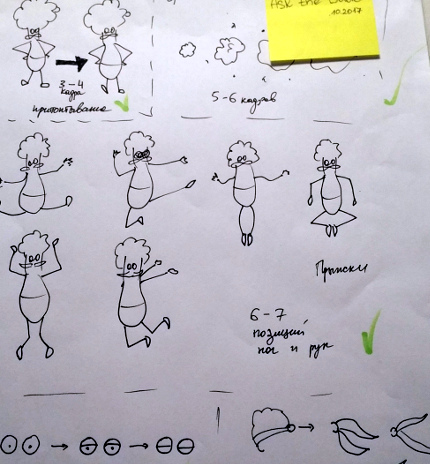 Ask the
10.2017
3-4
кадра
притоптывание
5-6 кадров
Пляски
6-7
позиций
ног и рук